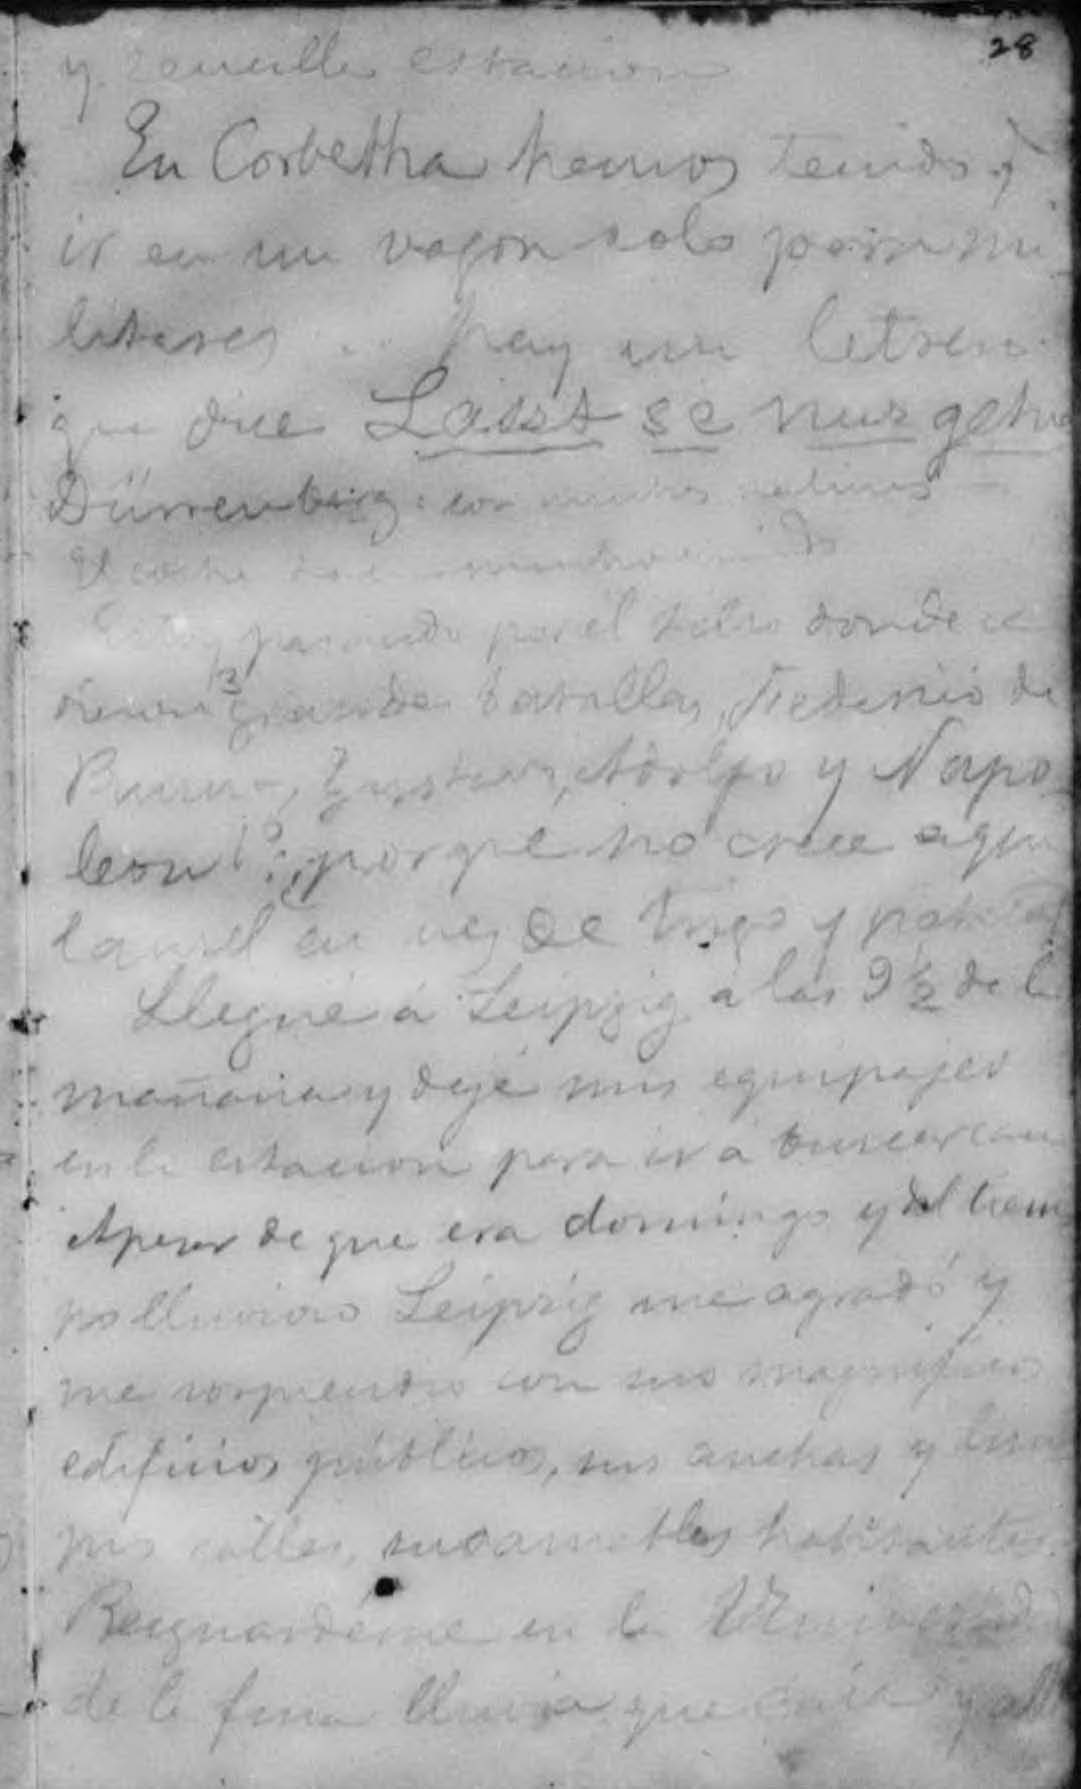 28
y sencilla estacion
En Corbetha hemos tenido q̃
ir en un vagon solo para mi-
litares .. hay un letrero
que dice Lasst se nur gehe
Dürrenberg: con muchos molinos
El coche hace mucho ruido
Estoy pasando por el sitio donde se
dieron 3 grandes batallas, Federico de
Gustavo Adolfo y Napo-
leon 1º: ¿porqué no crece aqui
laurel en vez de trigo y patatas
Llegué á Leipzig á las 9 ½ de la
mañana y dejé mis equipajes
en la estacion para ir á buscar
Apesar de que era domingo y del tiem-
po lluvioso Leipzig me agradó y
me sorprendio con sus magnificos
edificios públicos, sus anchas y lim-
pias calles, sus amables habitantes.
Resguardéme en la Universidad
de la fina lluvia que caía y alli